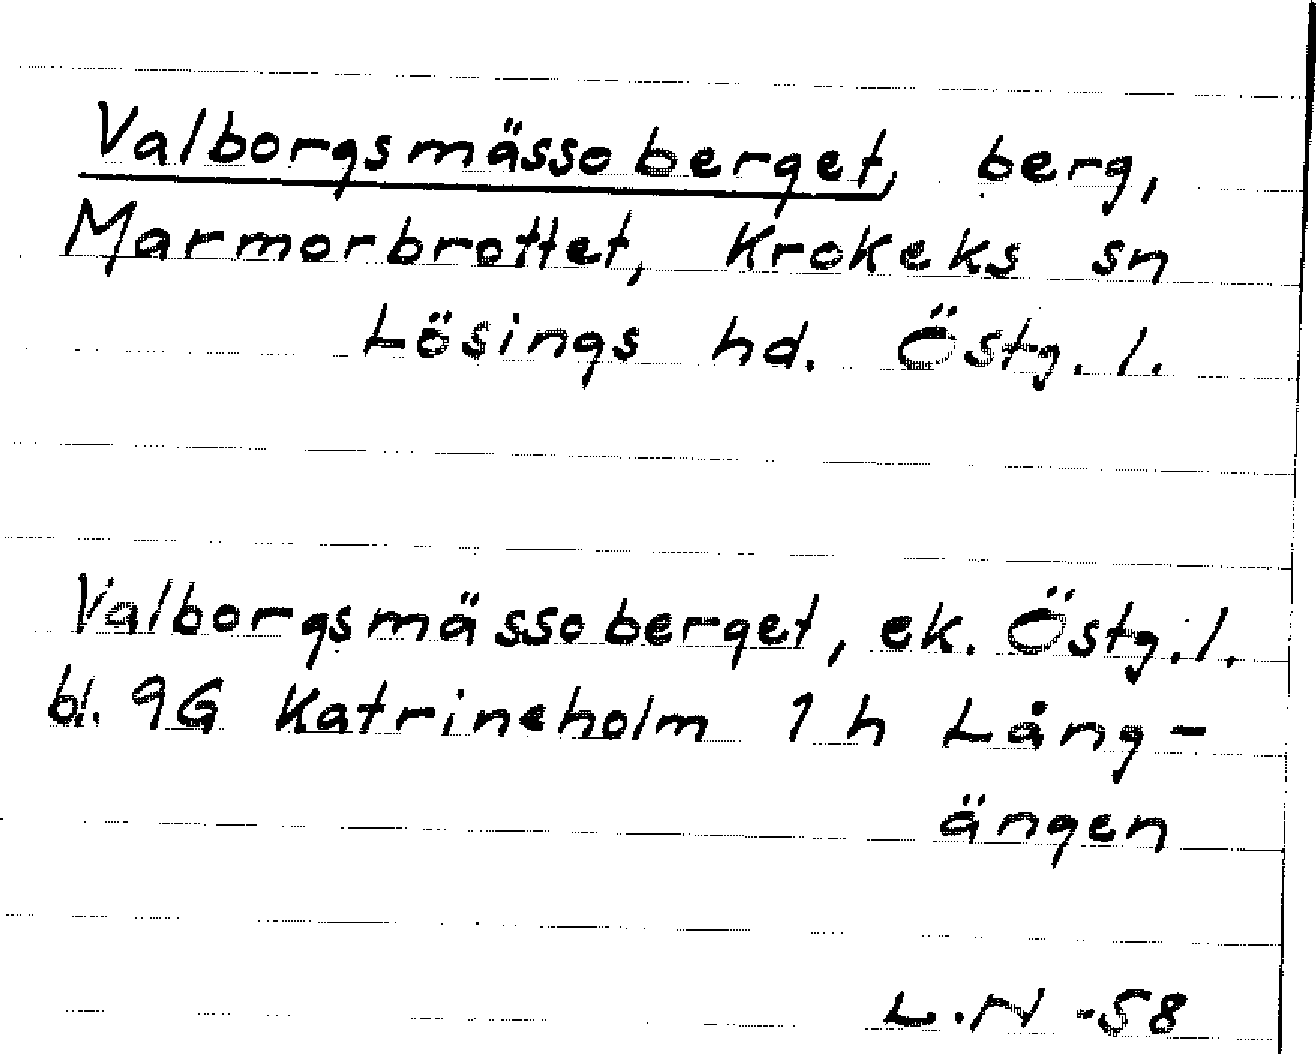 Valborgsmässoberget, berg,
Marmorbrottet, Krokeks sn
Lösings hd. Östg. l.
Valborgsmässoberget, ek. Östg. l.
bl. 9G Katrineholm 1 h Lång-
ängen
L.N -58